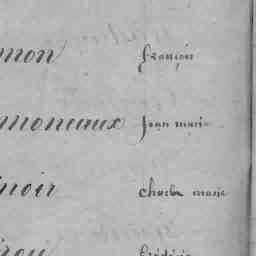 mon françois
monceaux jean marie
noir charles marie
frédéric